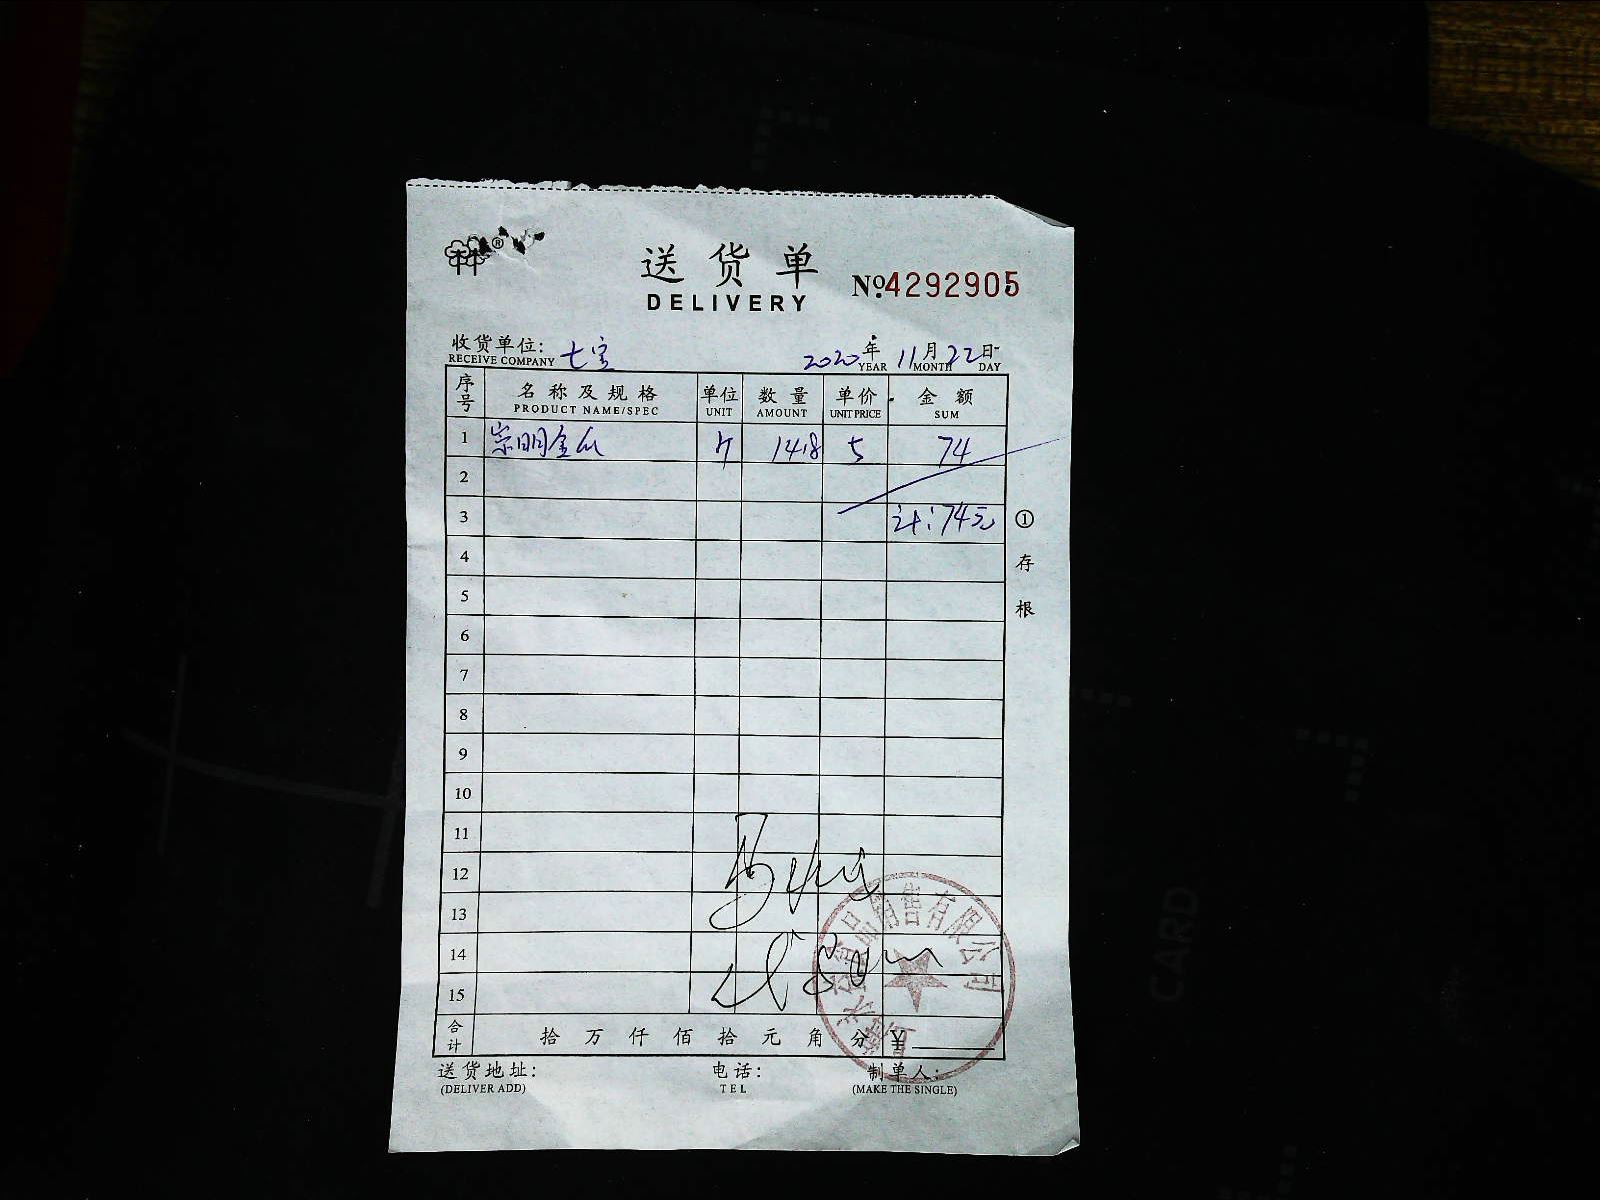 送货单
DELIVERY
№4292905
收货单位: 七宝 2020年11月22日
RECEIVE COMPANY YEAR MONTH DAY
序号 名称及规格 单位 数量 单价 金额
PRODUCT NAME/SPEC UNIT AMOUNT UNIT PRICE SUM
1 崇明金瓜 斤 14.8 5 74
2
3 计:74元
① 存根
4
5
6
7
8
9
10
11
12
13
14
15
品销售有限公司
合计 拾 万 仟 佰 拾 元 角 分 ¥
送货地址: 电话: 制单人:
(DELIVER ADD) TEL (MAKE THE SINGLE)
CARD